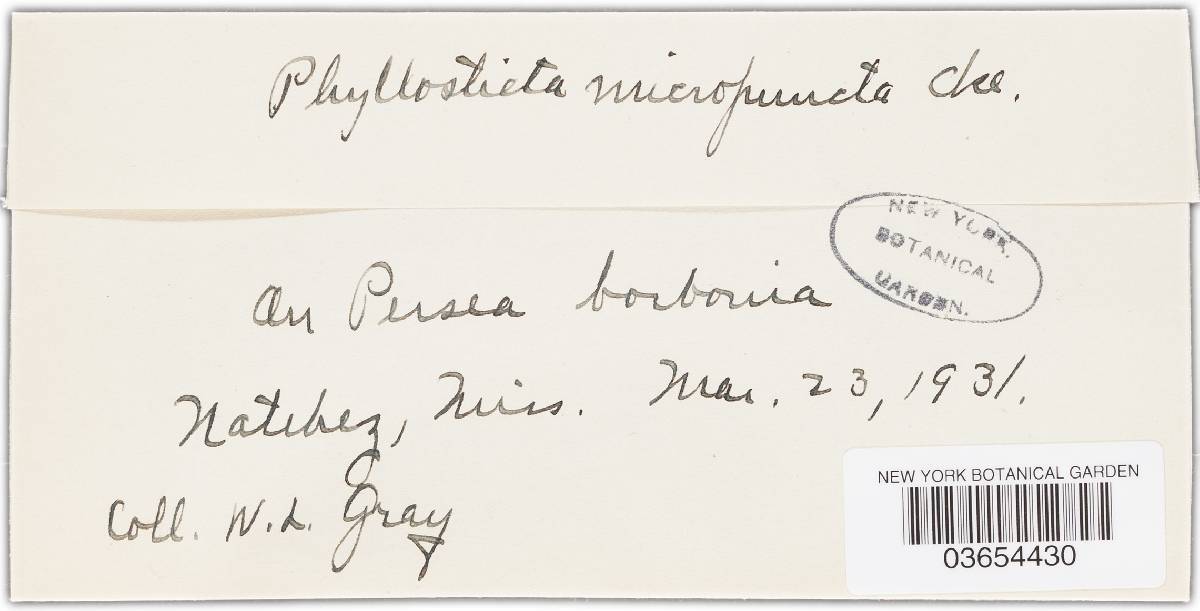 Phyllosticta micropuncta Cke.
NEW YORK
BOTANICAL
GARDEN.
On Persea borbonia
Natchez, Miss. Mar. 23, 1931.
Coll. W. L. Gray
NEW YORK BOTANICAL GARDEN
03654430